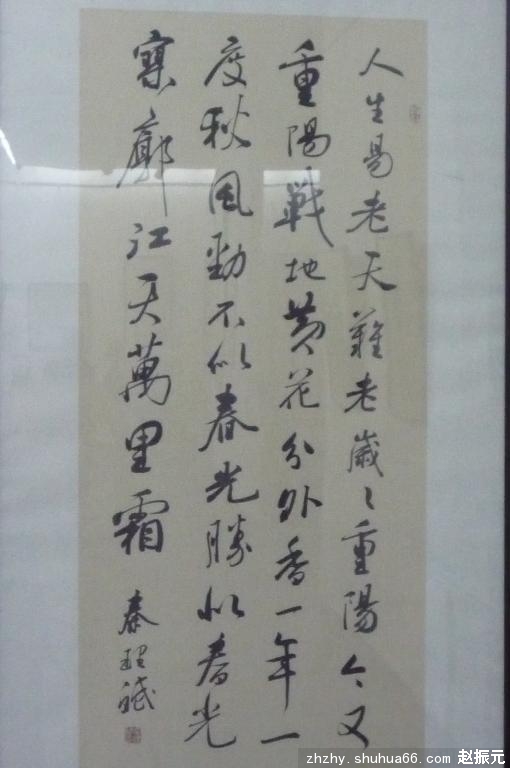 人生易老天難老歲〻重陽今又
重陽戰地黄花分外香一年一
度秋風勁不似春光勝似春光
寥廓江天萬里霜
秦
zhzhy.shuhua66.com 赵振元